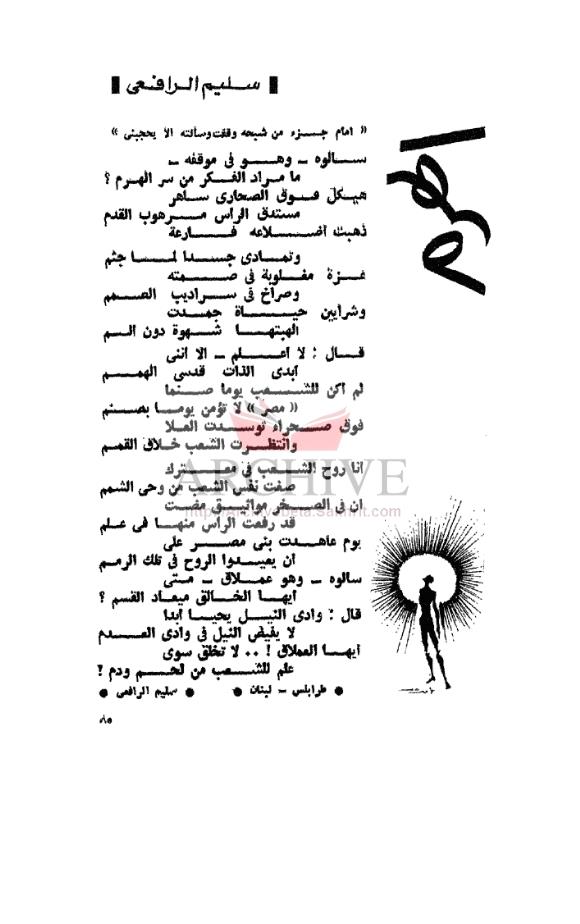 سليم الرافعى
الهرم
« امام جزء من شبحه وقفت وسألته الا يحجبنى »
سالوه ـ وهو فى موقفه ـ
ما مراد الفكر من سر الهرم ؟
هيكل فوق الصحارى ساهر
مستدق الراس مرهوب القدم
ذهبت اضلاعه فارعة
وتمادى جسدا لما جثم
غزة مغلوبة فى صمته
وصراخ فى سراديب الصمم
وشرايين حياة جمدت
الهبتها شهوة دون السم
قال : لا اعلم ـ الا اننى
ابدى الذات قدسى الهمم
لم اكن للشعب يوما صنما
« مصر » لا تؤمن يوما بصنم
فوق صحراء توسدت العلا
وانتظرت الشعب خلاق القمم
انا روح الشعب فى معترك
صفت نفس الشعب من وحى الشمم
ان فى الصخر مواثيق مضت
قد رفعت الراس منها فى علم
يوم عاهدت بنى مصر على
ان يعيدوا الروح فى تلك الرمم
سالوه ـ وهو عملاق ـ متى
ايها الخالق ميعاد القسم ؟
قال : وادى النيل يحيا ابدا
لا يفيض النيل فى وادى العدم
ايها العملاق ! .. لا تخلق سوى
علم للشعب من لحم ودم !
● طرابلس ـ لبنان ● ● سليم الرافعى ●
٨٥
ARCHIVE